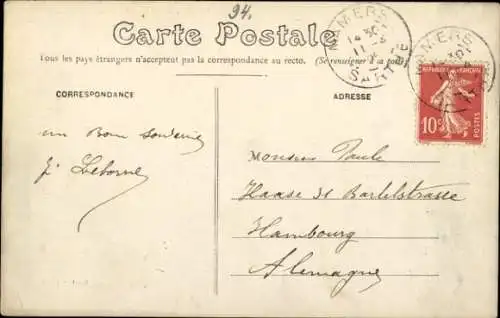 94.
Carte Postale
Tous les pays étrangers n'acceptent pas la correspondance au recto. (Se renseigner à la poste)
MAMERS
14 30
11
SARTHE
MAMERS
CORRESPONDANCE
ADRESSE
REPUBLIQUE FRANÇAISE
10c
POSTES
un Bon Souvenir
Monsieur Paule
Haase 31 Bartelstrasse
Hambourg
Alemagne